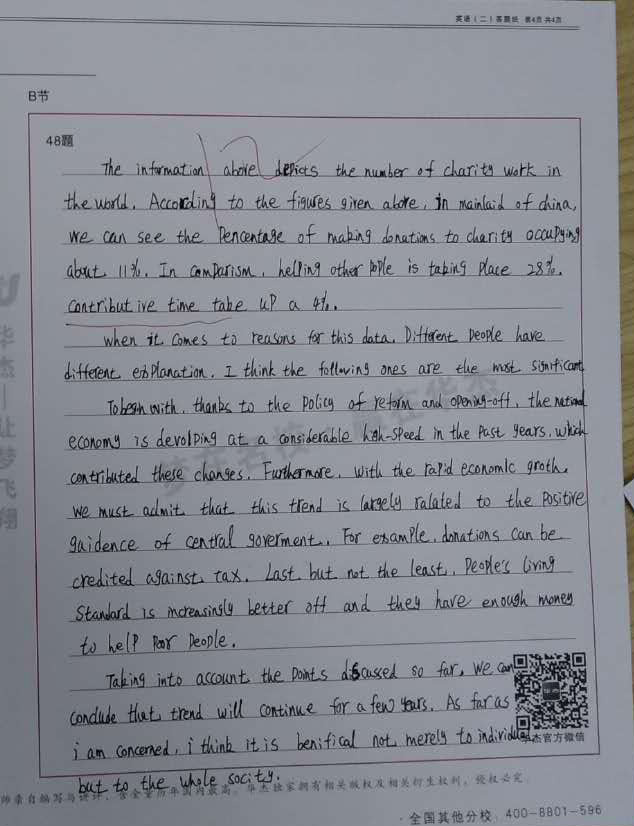 英语（二）答题纸 第4页 共4页
B节
48题
The information above depicts the number of charity work in
the world. According to the figures given above, in mainlaid of china,
we can see the Pencentage of making donations to charity occupying
about 11%. In comparism, helping other pople is taking place 28%.
contribut ive time take up a 4%.
when it comes to reasons for this data. Different people have
different explanation. I think the following ones are the most significant
To begin with, thanks to the policy of reform and opening-off, the national
economy is devolping at a considerable high-speed in the past years, which
contributed these changes. Furthermore, with the rapid economic groth,
we must admit that this trend is largely ralated to the positive
gaidence of central goverment. For example, donations can be
credited against tax. Last but not the least, People's living
standard is increasingly better off and they have enough money
to help poor people.
Taking into account the points discussed so far, we can
conclude that trend will continue for a few years. As far as
i am concerned, i think it is benifical not merely to individual
but to the whole socity.
华杰官方微信
师亲自编写与讲评，含金量历年国内最高。华杰独家拥有相关版权及相关衍生权利，侵权必究。
·全国其他分校：400-8801-596
华杰|让梦飞翔